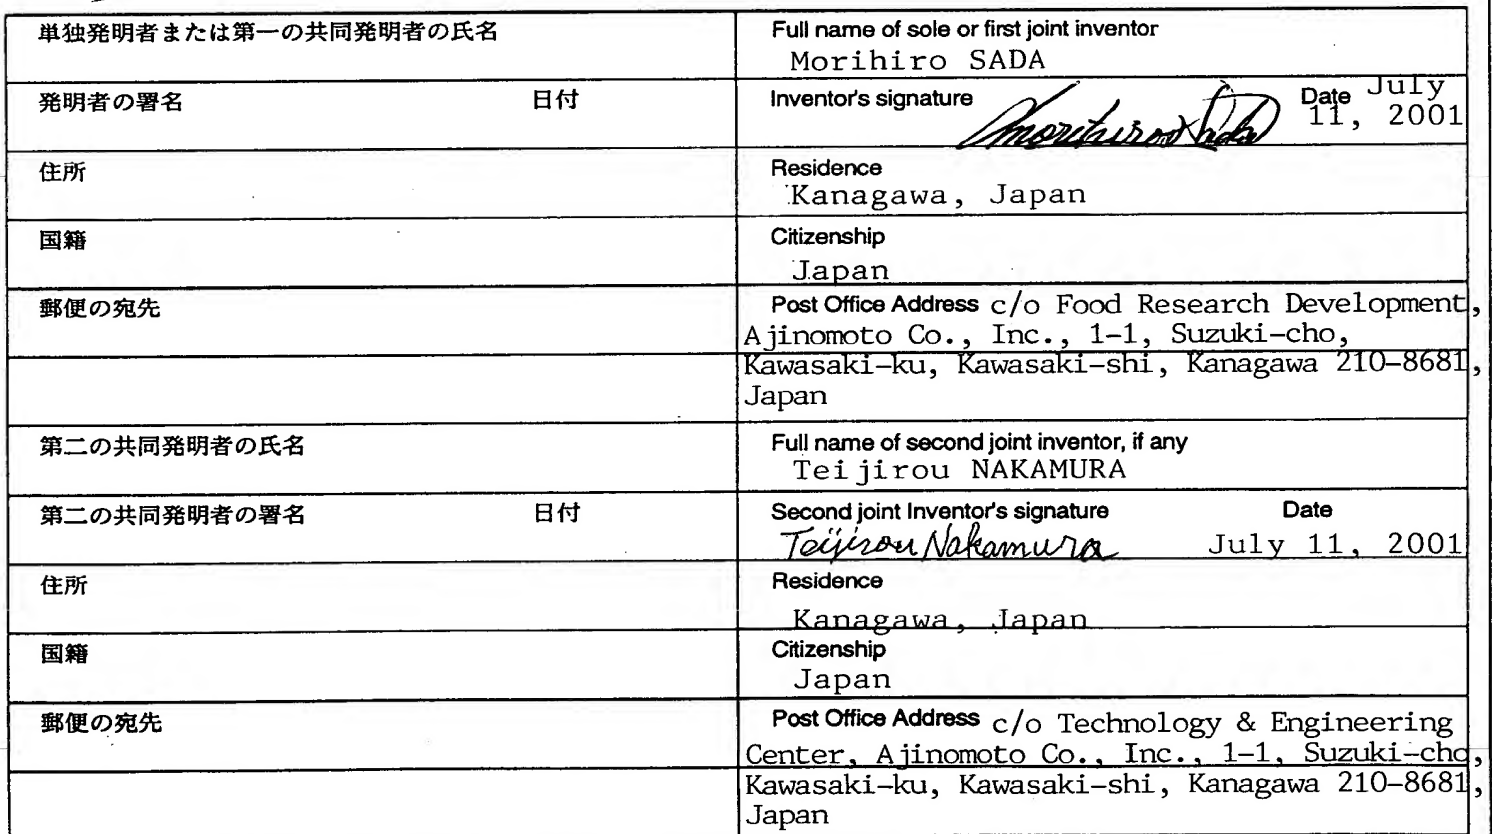 単独発明者または第一の共同発明者の氏名
Full name of sole or first joint inventor
Morihiro SADA
発明者の署名 日付
Inventor's signature Date July
Morihiro Sada 11, 2001
住所
Residence
Kanagawa, Japan
国籍
Citizenship
Japan
郵便の宛先
Post Office Address c/o Food Research Development,
Ajinomoto Co., Inc., 1-1, Suzuki-cho,
Kawasaki-ku, Kawasaki-shi, Kanagawa 210-8681,
Japan
第二の共同発明者の氏名
Full name of second joint inventor, if any
Teijirou NAKAMURA
第二の共同発明者の署名 日付
Second joint Inventor's signature Date
Teijirou Nakamura July 11, 2001
住所
Residence
Kanagawa, Japan
国籍
Citizenship
Japan
郵便の宛先
Post Office Address c/o Technology & Engineering
Center, Ajinomoto Co., Inc., 1-1, Suzuki-cho,
Kawasaki-ku, Kawasaki-shi, Kanagawa 210-8681,
Japan